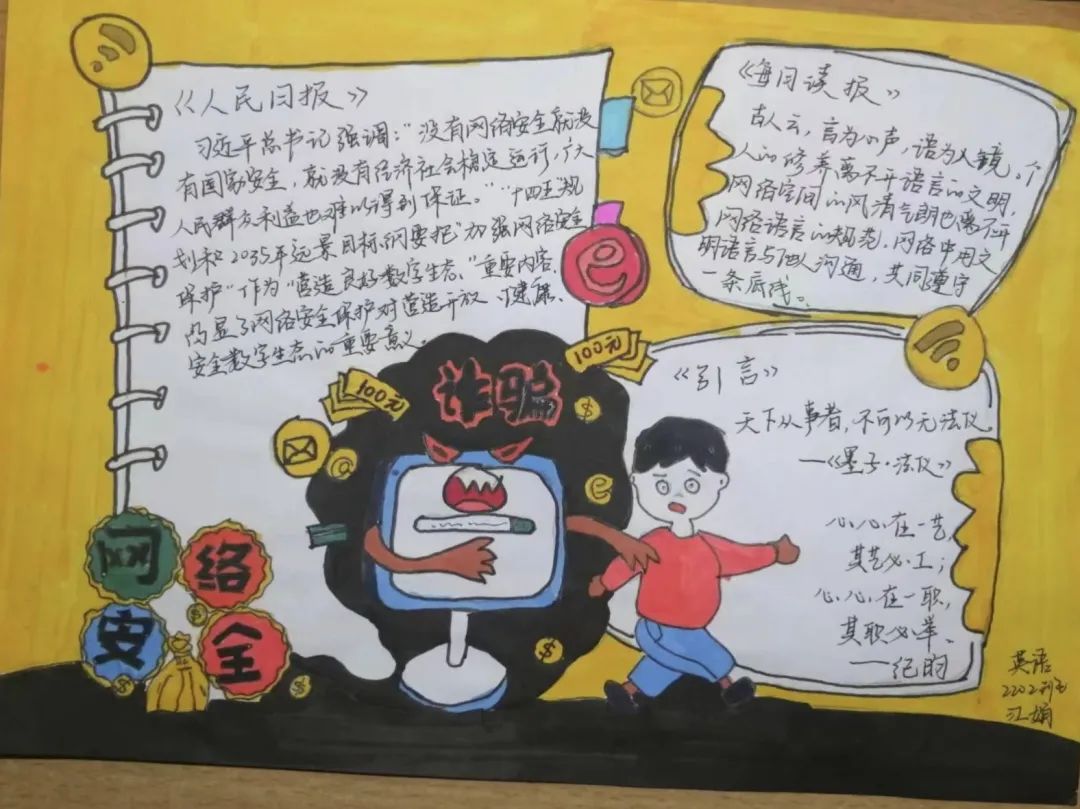 《人民日报》
习近平总书记强调:“没有网络安全就没
有国家安全,就没有经济社会稳定运行,广大
人民群众利益也难以得到保证。”“十四五规
划和2035年远景目标纲要把“加强网络安全
保护”作为“营造良好数字生态”重要内容,
凸显了网络安全保护对营造开放、健康、
安全数字生态的重要意义。
《每日读报》
古人云,言为心声,语为人镜。个
人的修养离不开语言的文明,
网络空间的风清气朗也离不开
网络语言的规范,网络中用文
明语言与他人沟通,共同遵守
一条底线。
诈骗
100元
100元
《引言》
天下从事者,不可以无法仪。
—《墨子·法仪》
心心在一艺,
其艺必工;
心心在一职,
其职必举、
—纪昀
@
e
e
$
$
$
$
$
网络
安全
英语
2202
江娟